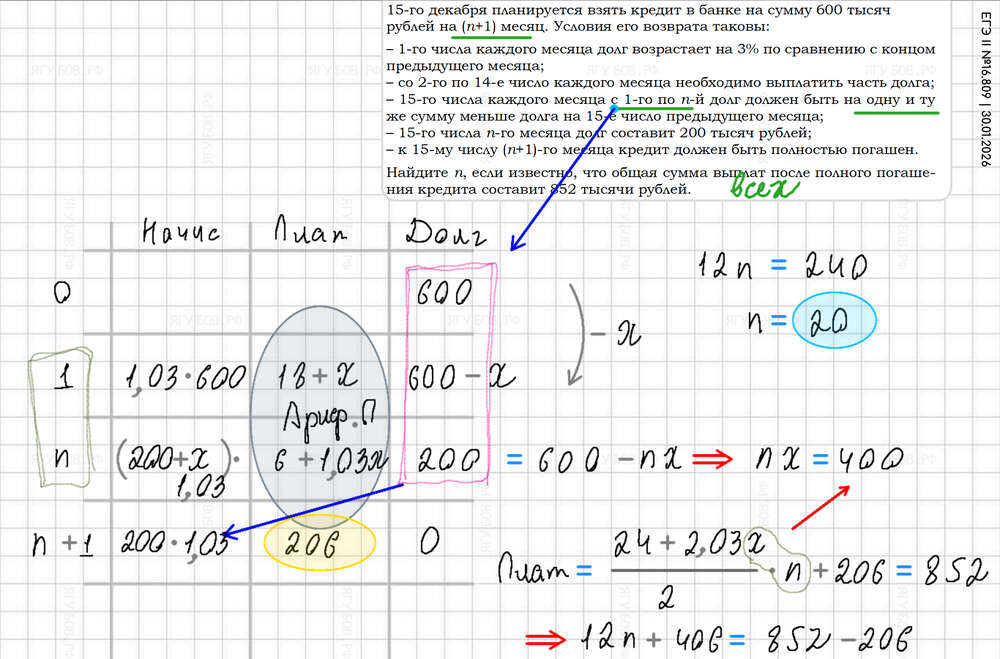 15-го декабря планируется взять кредит в банке на сумму 600 тысяч
рублей на (n+1) месяц. Условия его возврата таковы:
– 1-го числа каждого месяца долг возрастает на 3% по сравнению с концом
предыдущего месяца;
– со 2-го по 14-е число каждого месяца необходимо выплатить часть долга;
– 15-го числа каждого месяца с 1-го по n-й долг должен быть на одну и ту
же сумму меньше долга на 15-е число предыдущего месяца;
– 15-го числа n-го месяца долг составит 200 тысяч рублей;
– к 15-му числу (n+1)-го месяца кредит должен быть полностью погашен.
Найдите n, если известно, что общая сумма выплат после полного погаше-
ния кредита составит 852 тысячи рублей.
всех
ЕГЭ II №16.809 | 30.01.2026
Начис Плат Долг
0 600
12n = 240
n = 20
– x
1 1,03·600 18 + x 600 – x
Ариф.П
n (200+x)· 6 + 1,03x 200 = 600 – nx ⇒ nx = 400
1,03
n + 1 200·1,03 206 0
Плат = (24 + 2,03x)/2 · n + 206 = 852
⇒ 12n + 406 = 852 – 206
ЯГУБОВ.РФ